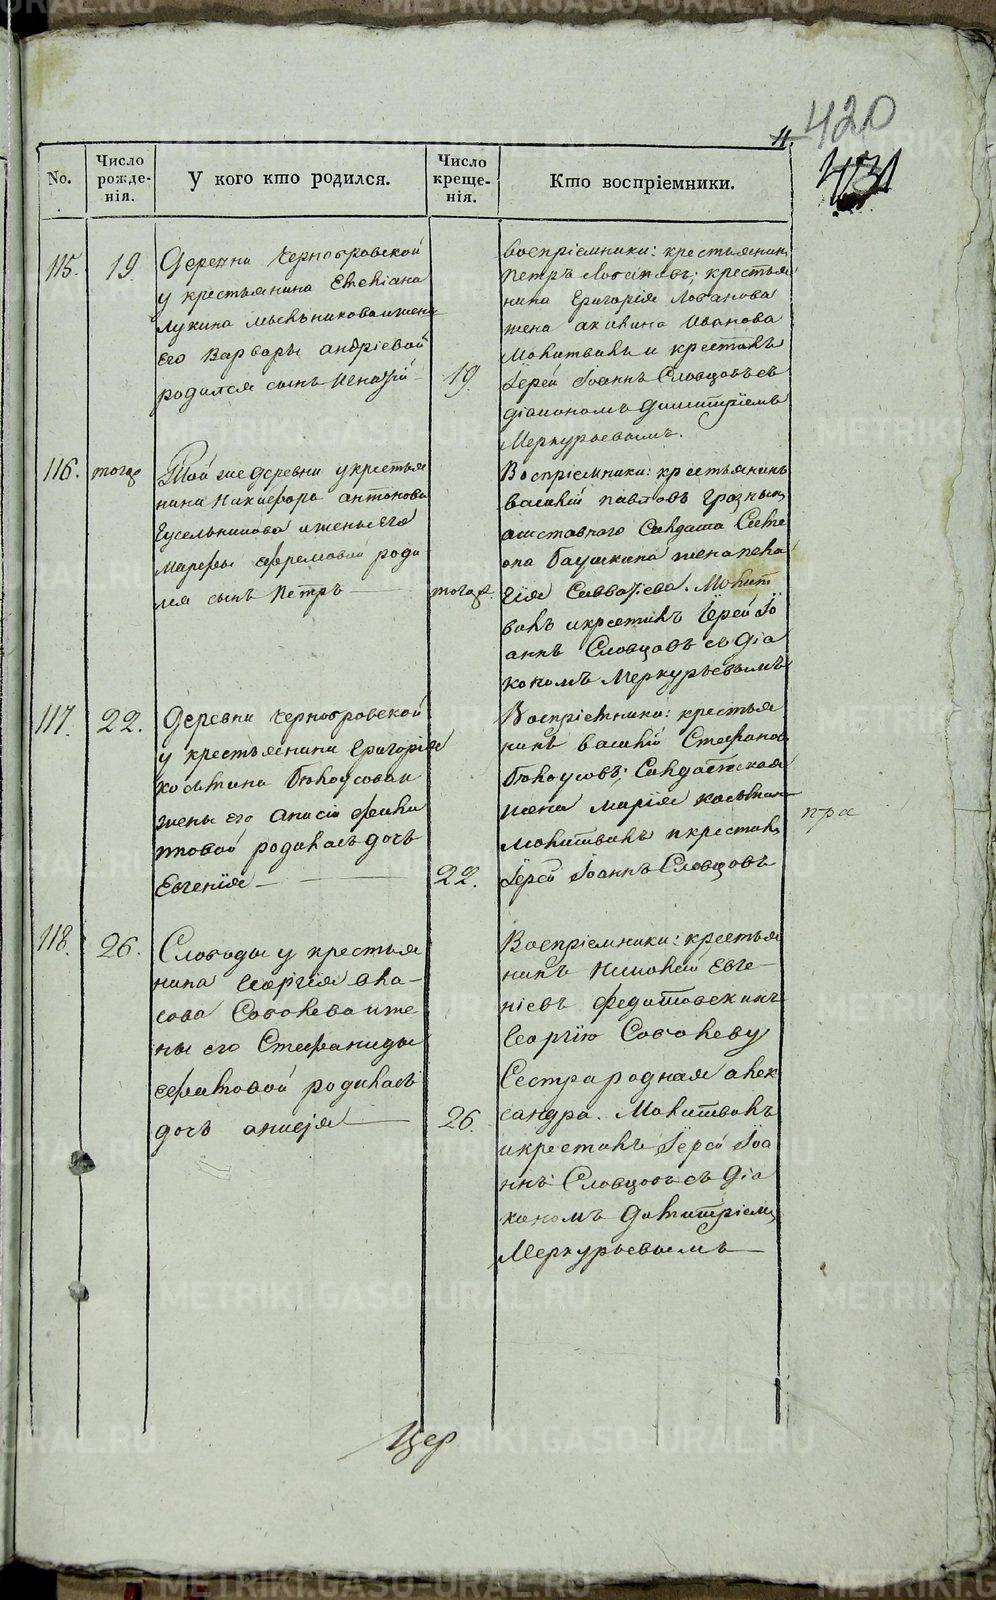 420
11.
431
No.
Число рожденія.
У кого кто родился.
Число крещенія.
Кто воспріемники.
115.
19
Деревни Чернобровской
у крестьянина Евгения
Лукина Мыльникова и жены
его Варвары Андріевой
родился сынъ Игнатій
19.
Воспріемники: крестьянинъ
Петръ Лобановъ; крестья
нина Григорія Лобанова
жена Акилина Иванова
Молитвилъ и крестилъ
Іерей Іоаннъ Словцовъ съ
діакономъ Димитріемъ
Меркурьевымъ.
116.
тогож
Той же деревни у крестья
нина Никифора Антонова
Гусельникова и жены его
Марфы Ефремовой роди
лся сынъ Петръ
тогож.
Воспріемники: крестьянинъ
Василій Павловъ Грозныхъ
отставнаго Солдата Степа
на Баушкина жена Пела
гія Савватіева. Молит
вилъ и крестилъ Іерей Іо
аннъ Словцовъ съ діа
кономъ Меркурьевымъ
117.
22.
Деревни Чернобровской
у крестьянина Григорія
Козьмина Бѣлоусова и
жены его Анисіи Фили
пповой родилась дочь
Евгенія
22.
Воспріемники: крестья
нинъ Василій Стефановъ
Бѣлоусовъ; Солдатская
жена Марія Козьмина
Молитвилъ и крестилъ
Іерей Іоаннъ Словцовъ
118.
26.
Слободы у крестья
нина Георгія Вла-
сова Соболева и же
ны его Стефаниды
родилась
дочь Анисія
26.
Воспріемники: крестья
нинъ Евге-
ніевъ Федотовскихъ
Георгію Соболеву
Сестра родная Алек
сандра. Молитвилъ
и крестилъ Іерей Іоа
ннъ Словцовъ съ діа
кономъ Димитріемъ
Меркурьевымъ
Цер
METRIKI.GASO-URAL.RU